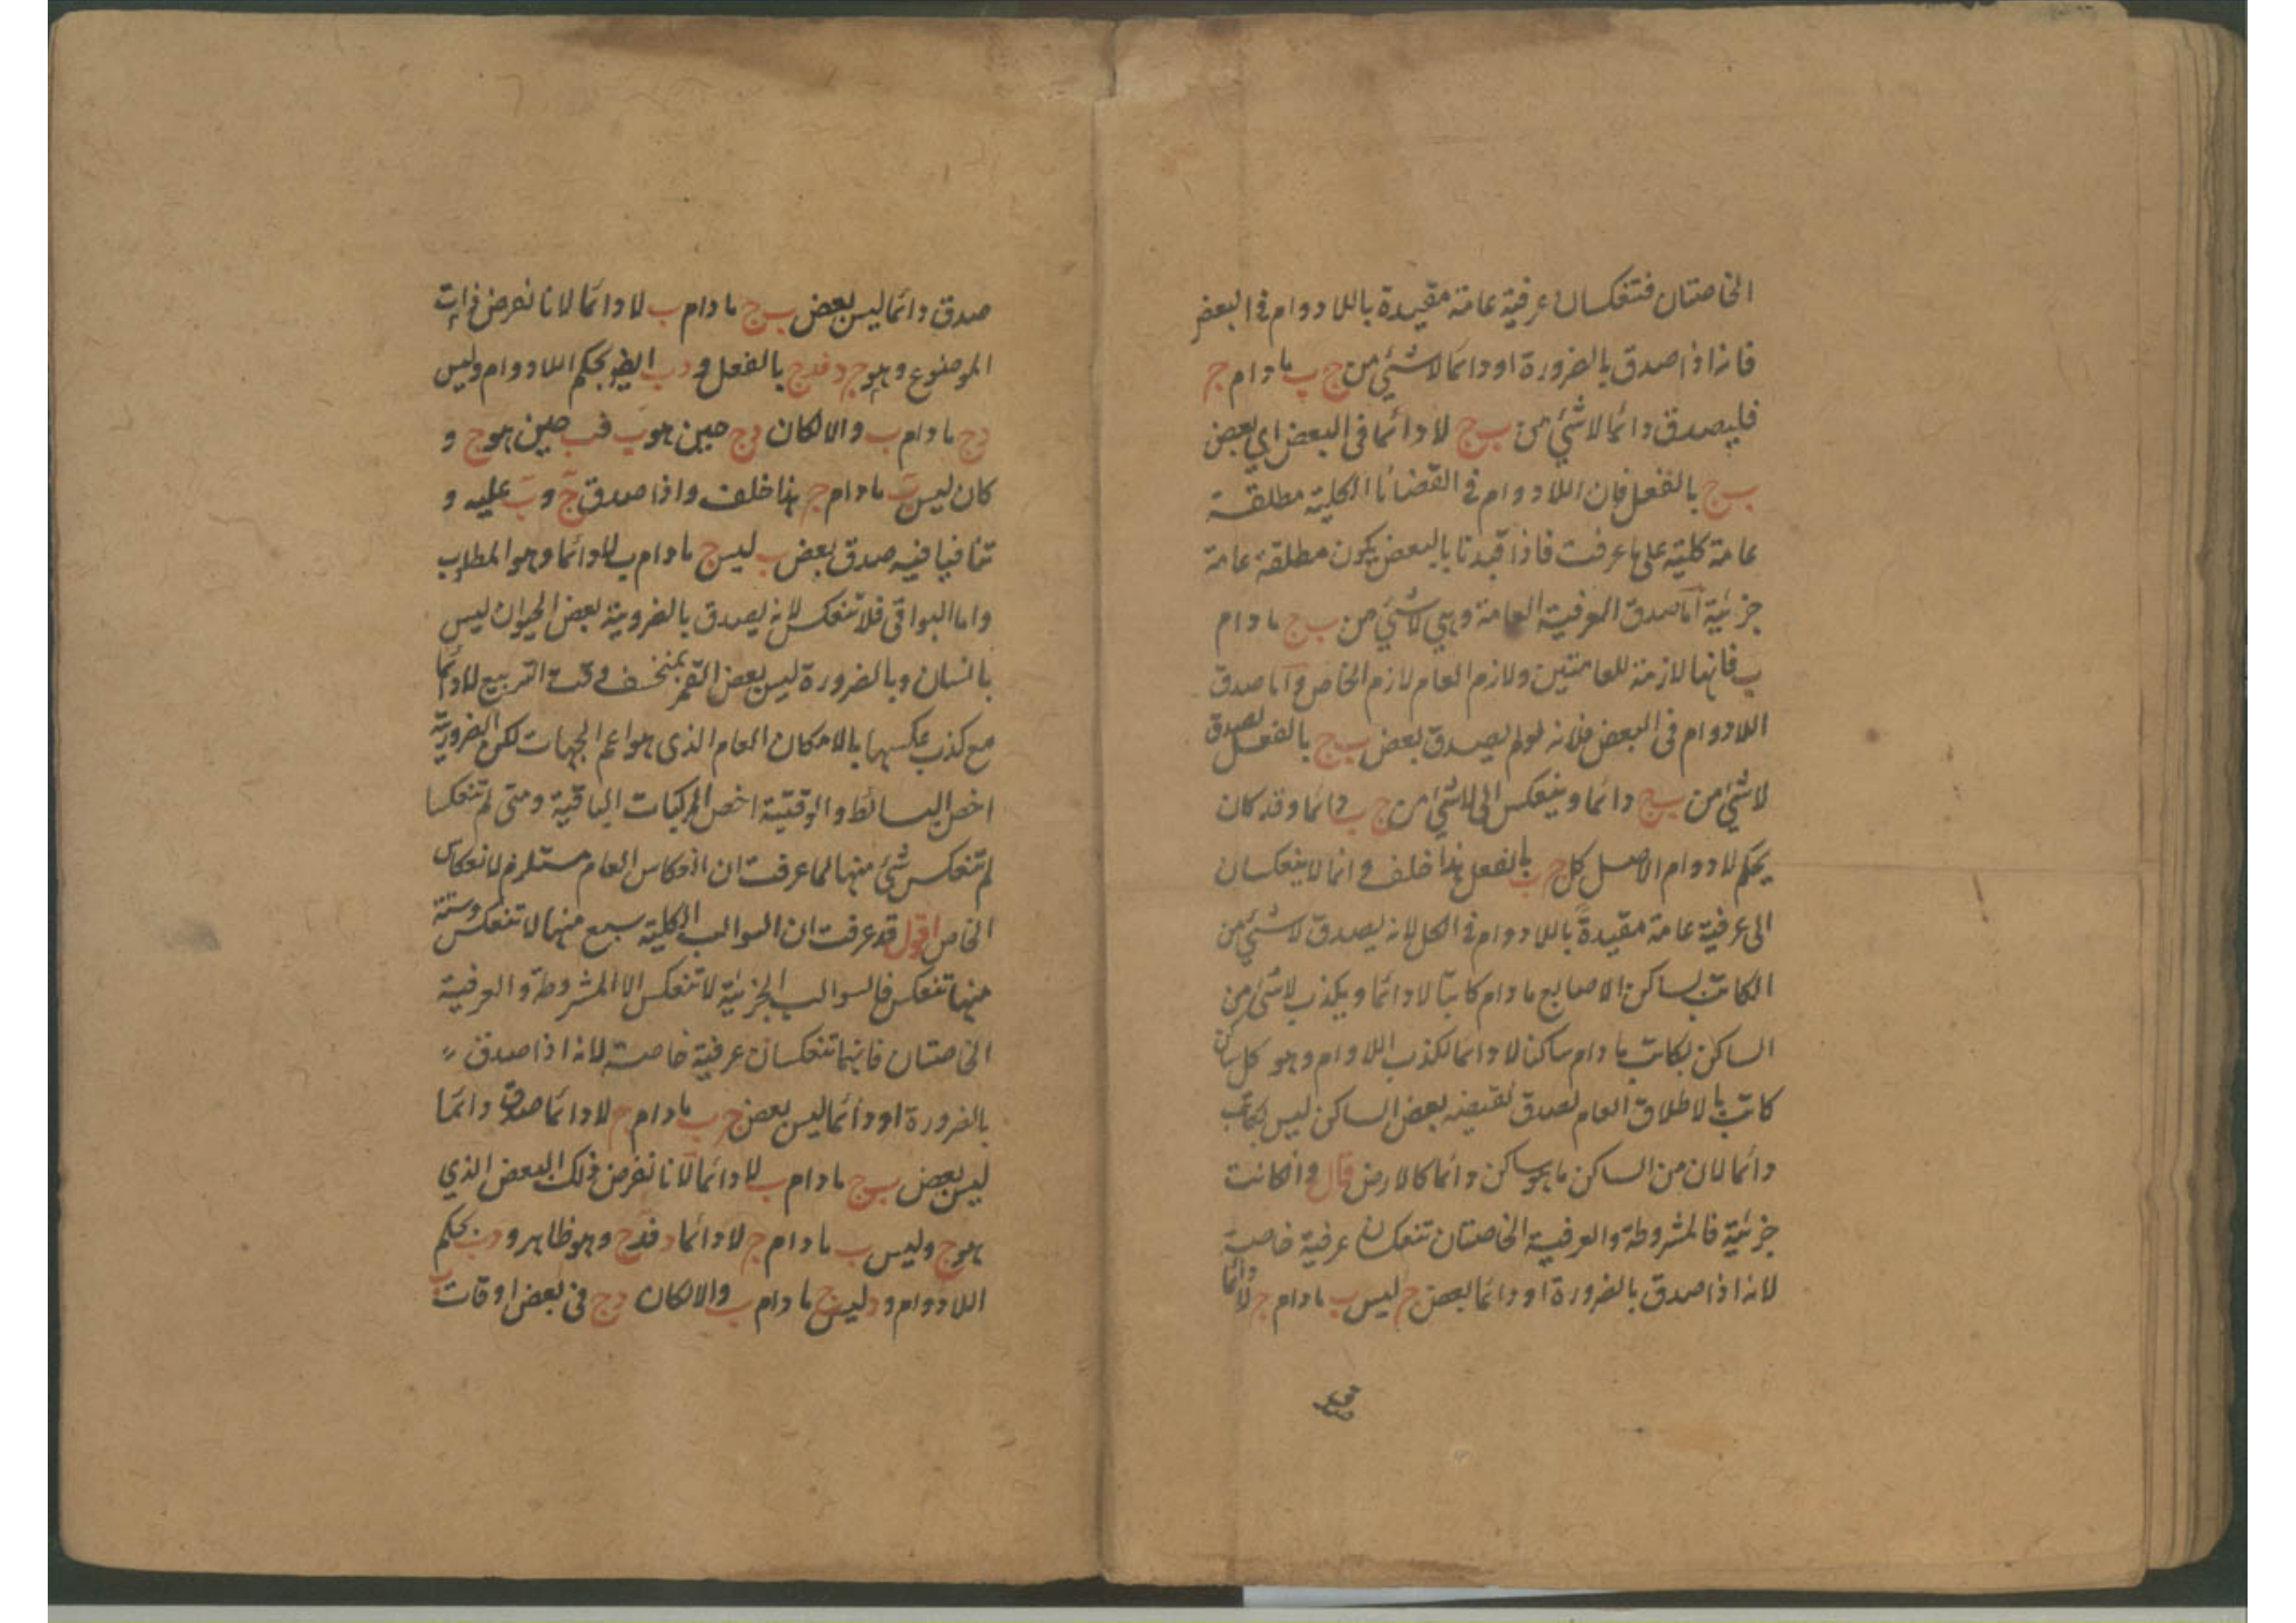 الخاصتان فتنعكسان عرفية عامة مقيدة باللادوام في البعض
فانه اذا صدق بالضرورة او دائما لا شئ من ج ب مادام ج
فليصدق دائما لا شئ من ب ج لا دائما في البعض اي بعض
ب ج بالفعل فان اللادوام في القضايا الكلية مطلقة
عامة كلية على ما عرفت فاذا قيدنا بالبعض يكون مطلقة عامة
جزئية اما صدق العرفية العامة وهي لا شئ من ب ج مادام
ب فانها لازمة للعامتين ولازم العام لازم الخاص واما صدق
اللادوام في البعض فلانه لو لم يصدق بعض ب ج بالفعل لصدق
لا شئ من ب ج دائما وينعكس الى لا شئ من ج ب دائما وقد كان
بحكم لادوام الاصل كل ج ب بالفعل هذا خلف وانما لا ينعكسان
الى عرفية عامة مقيدة باللادوام في الكل لانه يصدق لا شئ من
الكاتب بساكن الاصابع مادام كاتبا لا دائما ويكذب لا شئ من
الساكن بكاتب مادام ساكنا لا دائما لكذب اللاوام وهو كل ساكن
كاتب بالاطلاق العام لصدق نقيضه بعض الساكن ليس بكاتب
دائما لان من الساكن ما هو ساكن دائما كالارض قال وان كانت
جزئية فالمشروطة والعرفية الخاصتان تنعكسان عرفية خاصة
لانه اذا صدق بالضرورة او دائما بعض ج ليس ب مادام ج لا دائما
صدق دائما ليس بعض ب ج مادام ب لا دائما لانا نفرض ذات
الموضوع وهو ج د فدج بالفعل و دب ايضا بحكم اللادوام وليس
دج مادام ب والا لكان دج حين هو ب فب حين هو ج و
كان ليس ب مادام ج هذا خلف واذا صدق ج و ب عليه و
تنافيا فيه صدق بعض ب ليس ج مادام ب لا دائما وهو المطلوب
واما البواقى فلا تنعكس لانه يصدق بالضروية بعض الحيوان ليس
بانسان وبالضرورة ليس بعض القمر بمنخسف وقت التربيع لا دائما
مع كذب عكسها بالامكان العام الذى هو اعم الجهات لكون الضرورية
اخص البسائط والوقتية اخص المركبات الباقية ومتى لم تنعكسا
لم تنعكس شئ منها لما عرفت ان انعكاس العام مستلزم لانعكاس
الخاص اقول قد عرفت ان السوالب الكلية سبع منها لا تنعكس وستة
منها تنعكس فالسوالب الجزئية لا تنعكس الا المشروطة والعرفية
الخاصتان فانهما تنعكسان عرفية خاصة لانه اذا صدق
بالضرورة او دائما ليس بعض ج ب مادام ج لا دائما صدق دائما
ليس بعض ب ج مادام ب لا دائما لانا نفرض ذلك البعض الذي
هو ج وليس ب مادام ج لا دائما د فدج وهو ظاهر و دب بحكم
اللادوام و د ليس ج مادام ب والا لكان دج في بعض اوقات ب